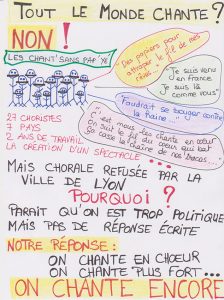 TOUT LE MONDE CHANTE ?
NON !
LES CHANT'SANS PAP'YÉ
Des papiers pour
attraper le fil de mes
rêves...
"Je suis venu
en France
Je suis là
comme vous"
"Faudrait se bouger contre
la haine..."
"C'est nous les chants en cœur
du cœur qui bat
Ça casse la chaîne de nos tracas..."
23 CHORISTES
7 PAYS
2 ANS DE TRAVAIL
LA CRÉATION D'UN SPECTACLE
MAIS CHORALE REFUSÉE PAR LA
VILLE DE LYON
POURQUOI ?
PARAIT QU'ON EST TROP POLITIQUE
MAIS PAS DE RÉPONSE ÉCRITE
NOTRE RÉPONSE :
ON CHANTE EN CHOEUR
ON CHANTE PLUS FORT...
ON CHANTE ENCORE